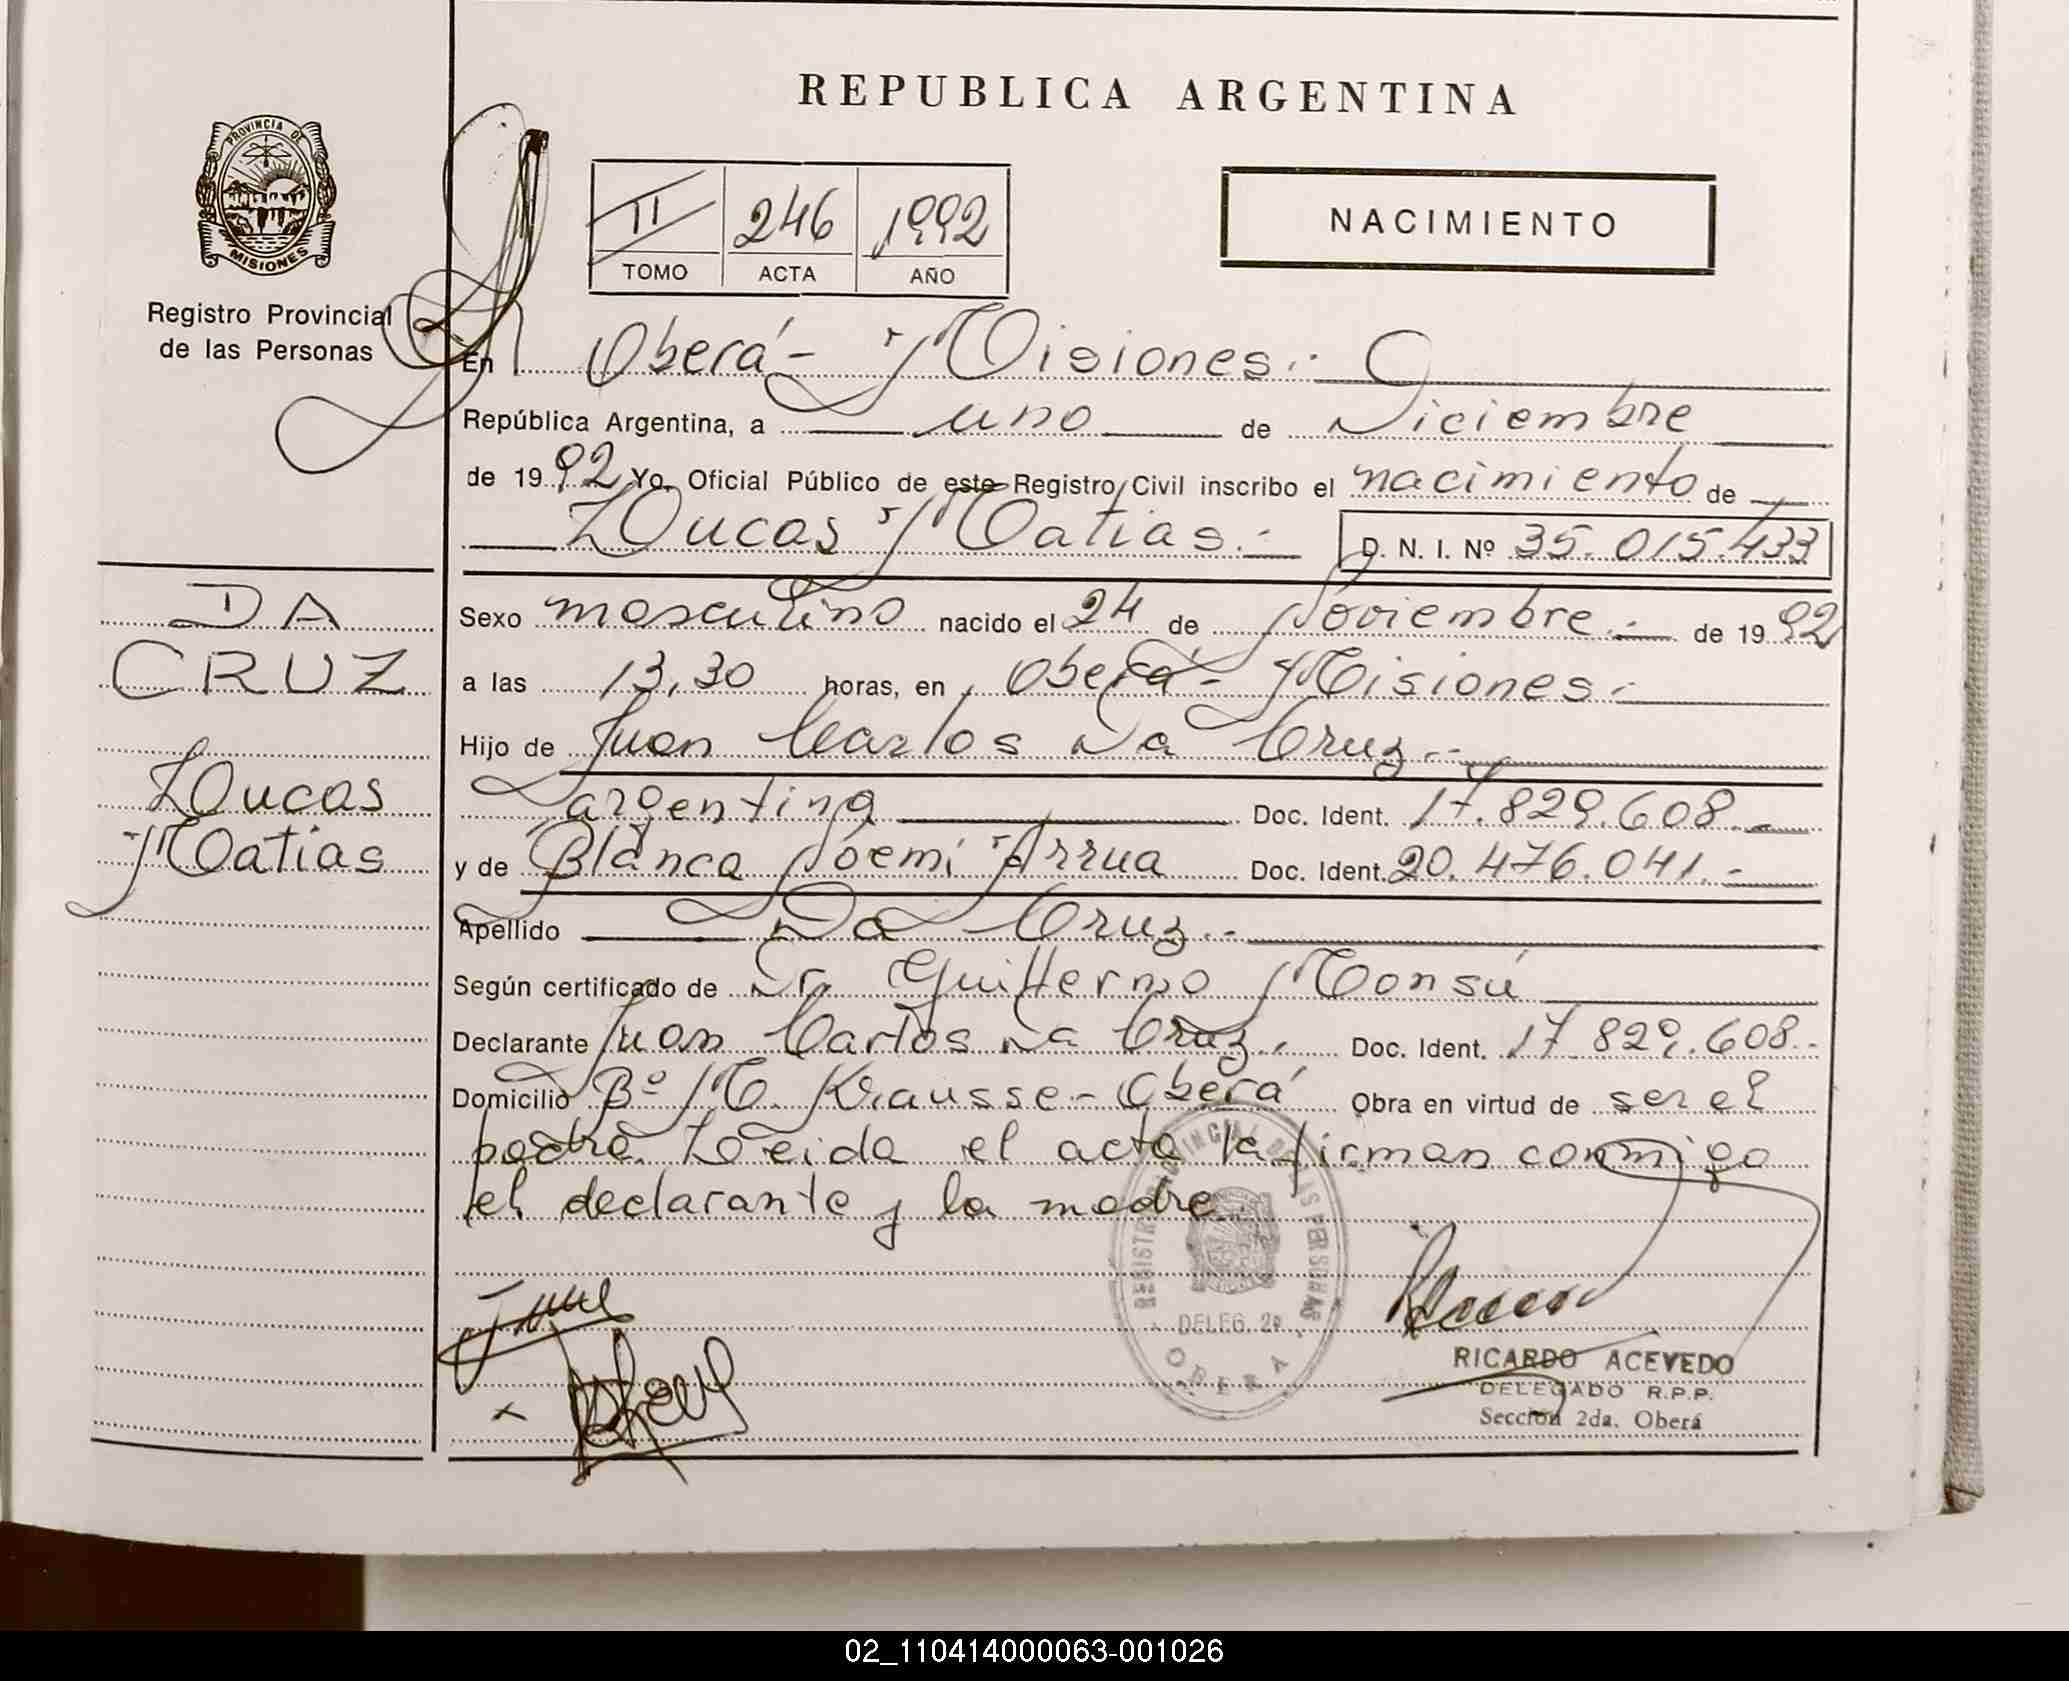 REPUBLICA ARGENTINA
PROVINCIA DE
MISIONES
Registro Provincial
de las Personas
II 246 1992
TOMO ACTA AÑO
NACIMIENTO
En Oberá - Misiones.-
República Argentina, a uno de Diciembre
de 1992 Yo, Oficial Público de este Registro Civil inscribo el nacimiento de
Lucas Matias.- D. N. I. Nº 35.015.433
DA
CRUZ
Lucas
Matias
Sexo masculino nacido el 24 de Noviembre.- de 1992
a las 13,30 horas, en Oberá - Misiones.-
Hijo de Juan Carlos Da Cruz.-
argentino Doc. Ident. 17.829.608.-
y de Blanca Noemi Arrua Doc. Ident. 20.476.041.-
Apellido Da Cruz.-
Según certificado de Dr. Guillermo Monsú
Declarante Juan Carlos Da Cruz. Doc. Ident. 17 829.608.-
Domicilio Bº M. Krausse - Oberá Obra en virtud de ser el
padre. Leida el acta la firman conmigo
el declarante y la madre.
REGISTRO PROVINCIAL DE LAS PERSONAS
DELEG. 2ª
OBERA
RICARDO ACEVEDO
DELEGADO R.P.P.
Sección 2da. Oberá
02_110414000063-001026